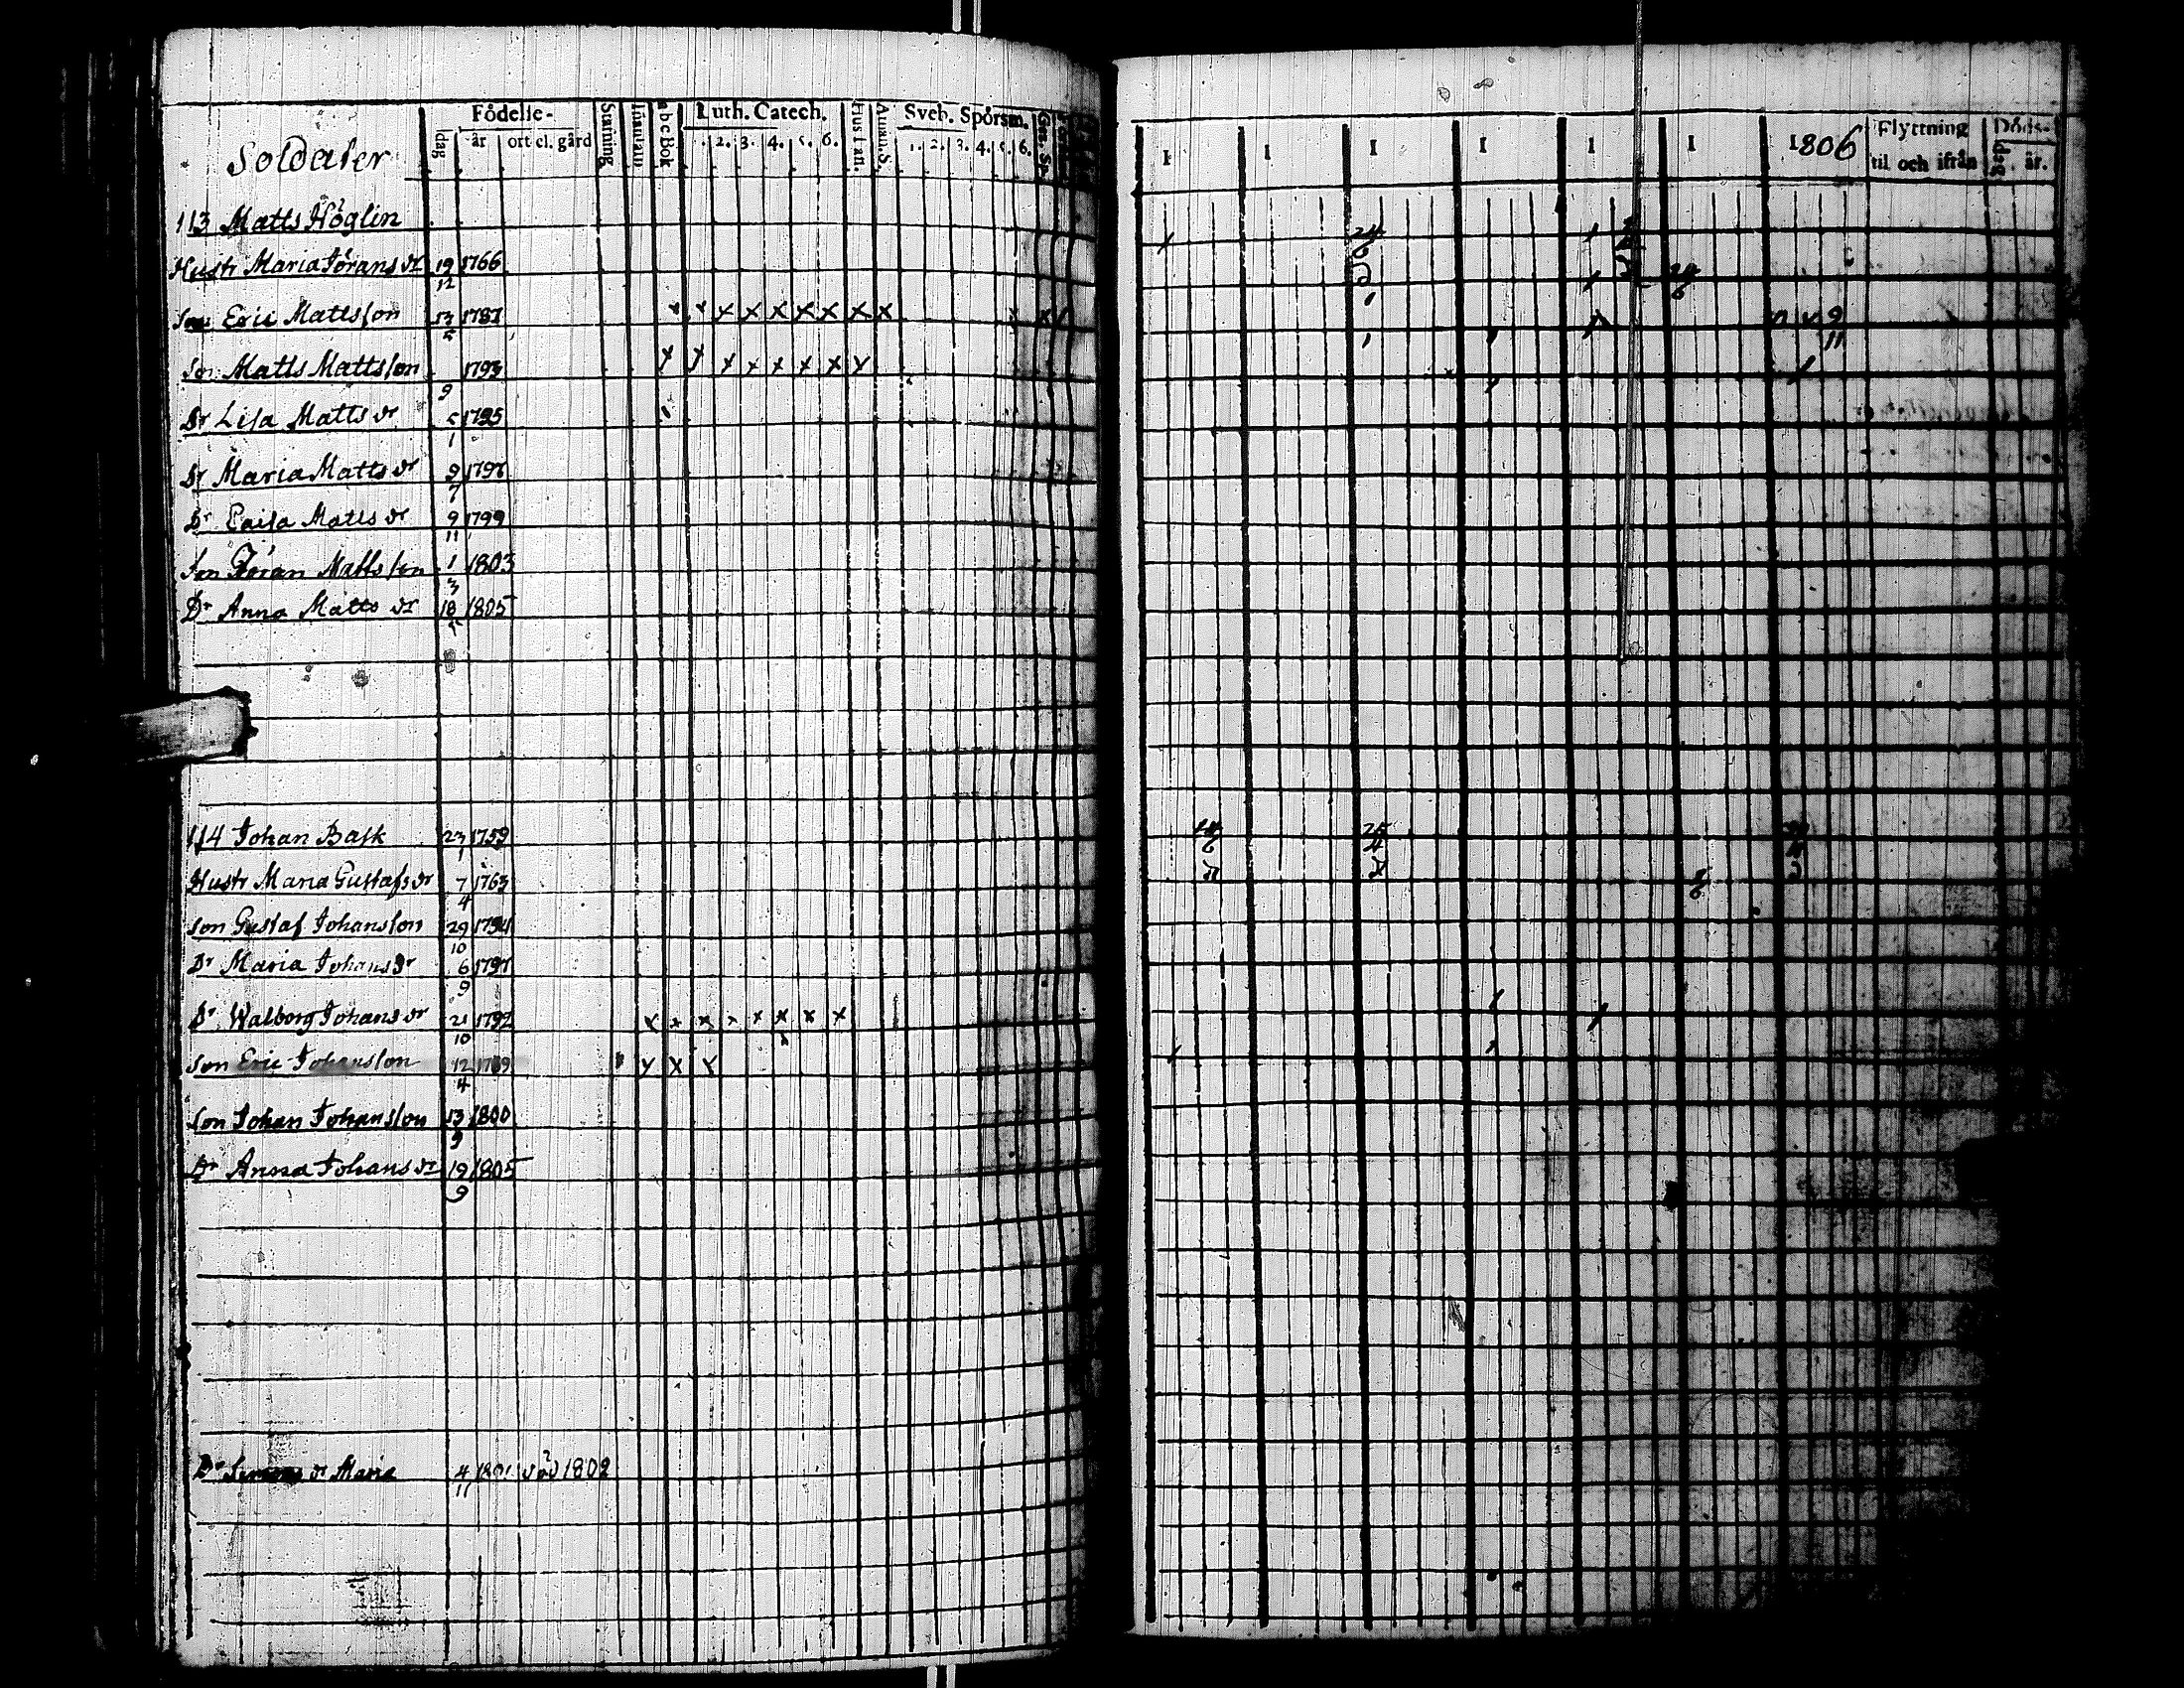 Soldater
Födelse-
dag år ort el. gård
Stafning
Innantil
abc Bok
Luth. Catech.
1. 2. 3. 4. 5. 6.
Hustafl.
Sveb. Spörsm.
1. 2. 3. 4. 5. 6.
I I I I I I 1806
Flyttning
til och ifrån
Döds-
dag år.
113 Matts Höglin
Hustr Maria Jörans dr 19/12 1766
Son Eric Mattsson 13/5 1787 x x x x x x x x x 9/11
Son Matts Mattsson /9 1793 x x x x x x x x
Dr Lisa Matts dr 5/1 1795
Dr Maria Matts dr 9/7 1797
Dr Caisa Matts dr 9/11 1799
Son Jöran Mattsson 1/3 1803
Dr Anna Matts dr 18 1805
114 Johan Bask 23/1 1759
Hustr Maria Gustafs dr 7/4 1763
Son Gustaf Johansson 29/10 1794
Dr Maria Johans dr 6/9 1797
Dr Walborg Johans dr 21/10 1792 x x x x x x x x
Son Eric Johansson 12/4 1789 x x x
Son Johan Johansson 13/9 1800
Dr Anna Johans dr 19/9 1805
Dr Maria 4/11 1801 död 1802